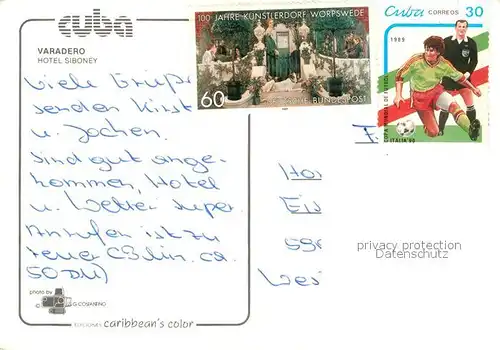 cuba
VARADERO
HOTEL SIBONEY
100 JAHRE KÜNSTLERDORF WORPSWEDE
60
DEUTSCHE BUNDESPOST
Cuba CORREOS 30
1989
COPA MUNDIAL DE FUTBOL
ITALIA '90
Viele Grüße
senden Kirst
u. Jochen.
Sind gut ange-
kommen, Hotel
u. Wetter super
Anrufen ist zu
teuer (3 Min. ca.
50 DM)
privacy protection
Datenschutz
photo by
©
EDICIONES caribbean's color